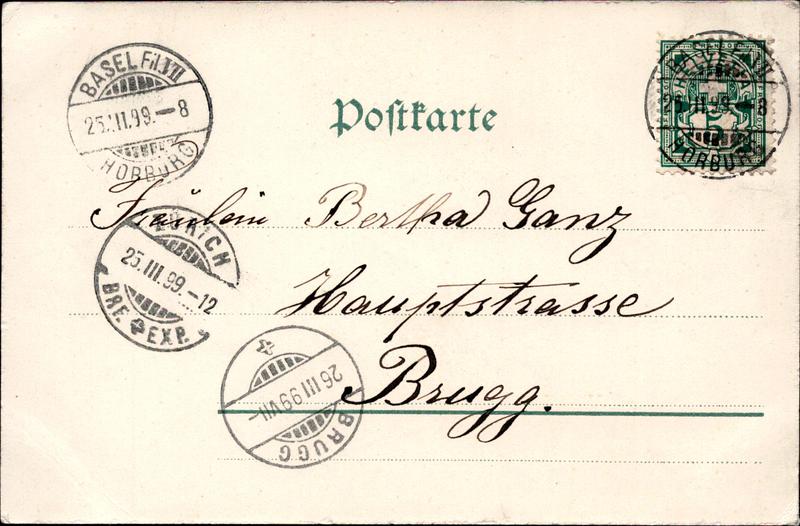 BASEL Fil. VII
25. III. 99. – 8
HORBURG
Postkarte
HELVETIA
5
25. III. 99. – 8
HORBURG
Fräulein Bertha Ganz
ZÜRICH
25. III. 99. – 12
BRF. EXP.
Hauptstrasse
Brugg.
26 III 99 VII –
BRUGG